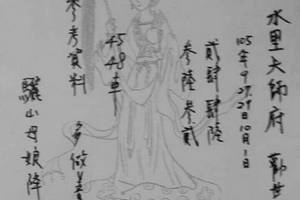 水里大師府 勸世
105年9月27.29日10月1日
貳肆肆陸
參陸參貳
45
48車
參考資料 多做善
驪山母娘降